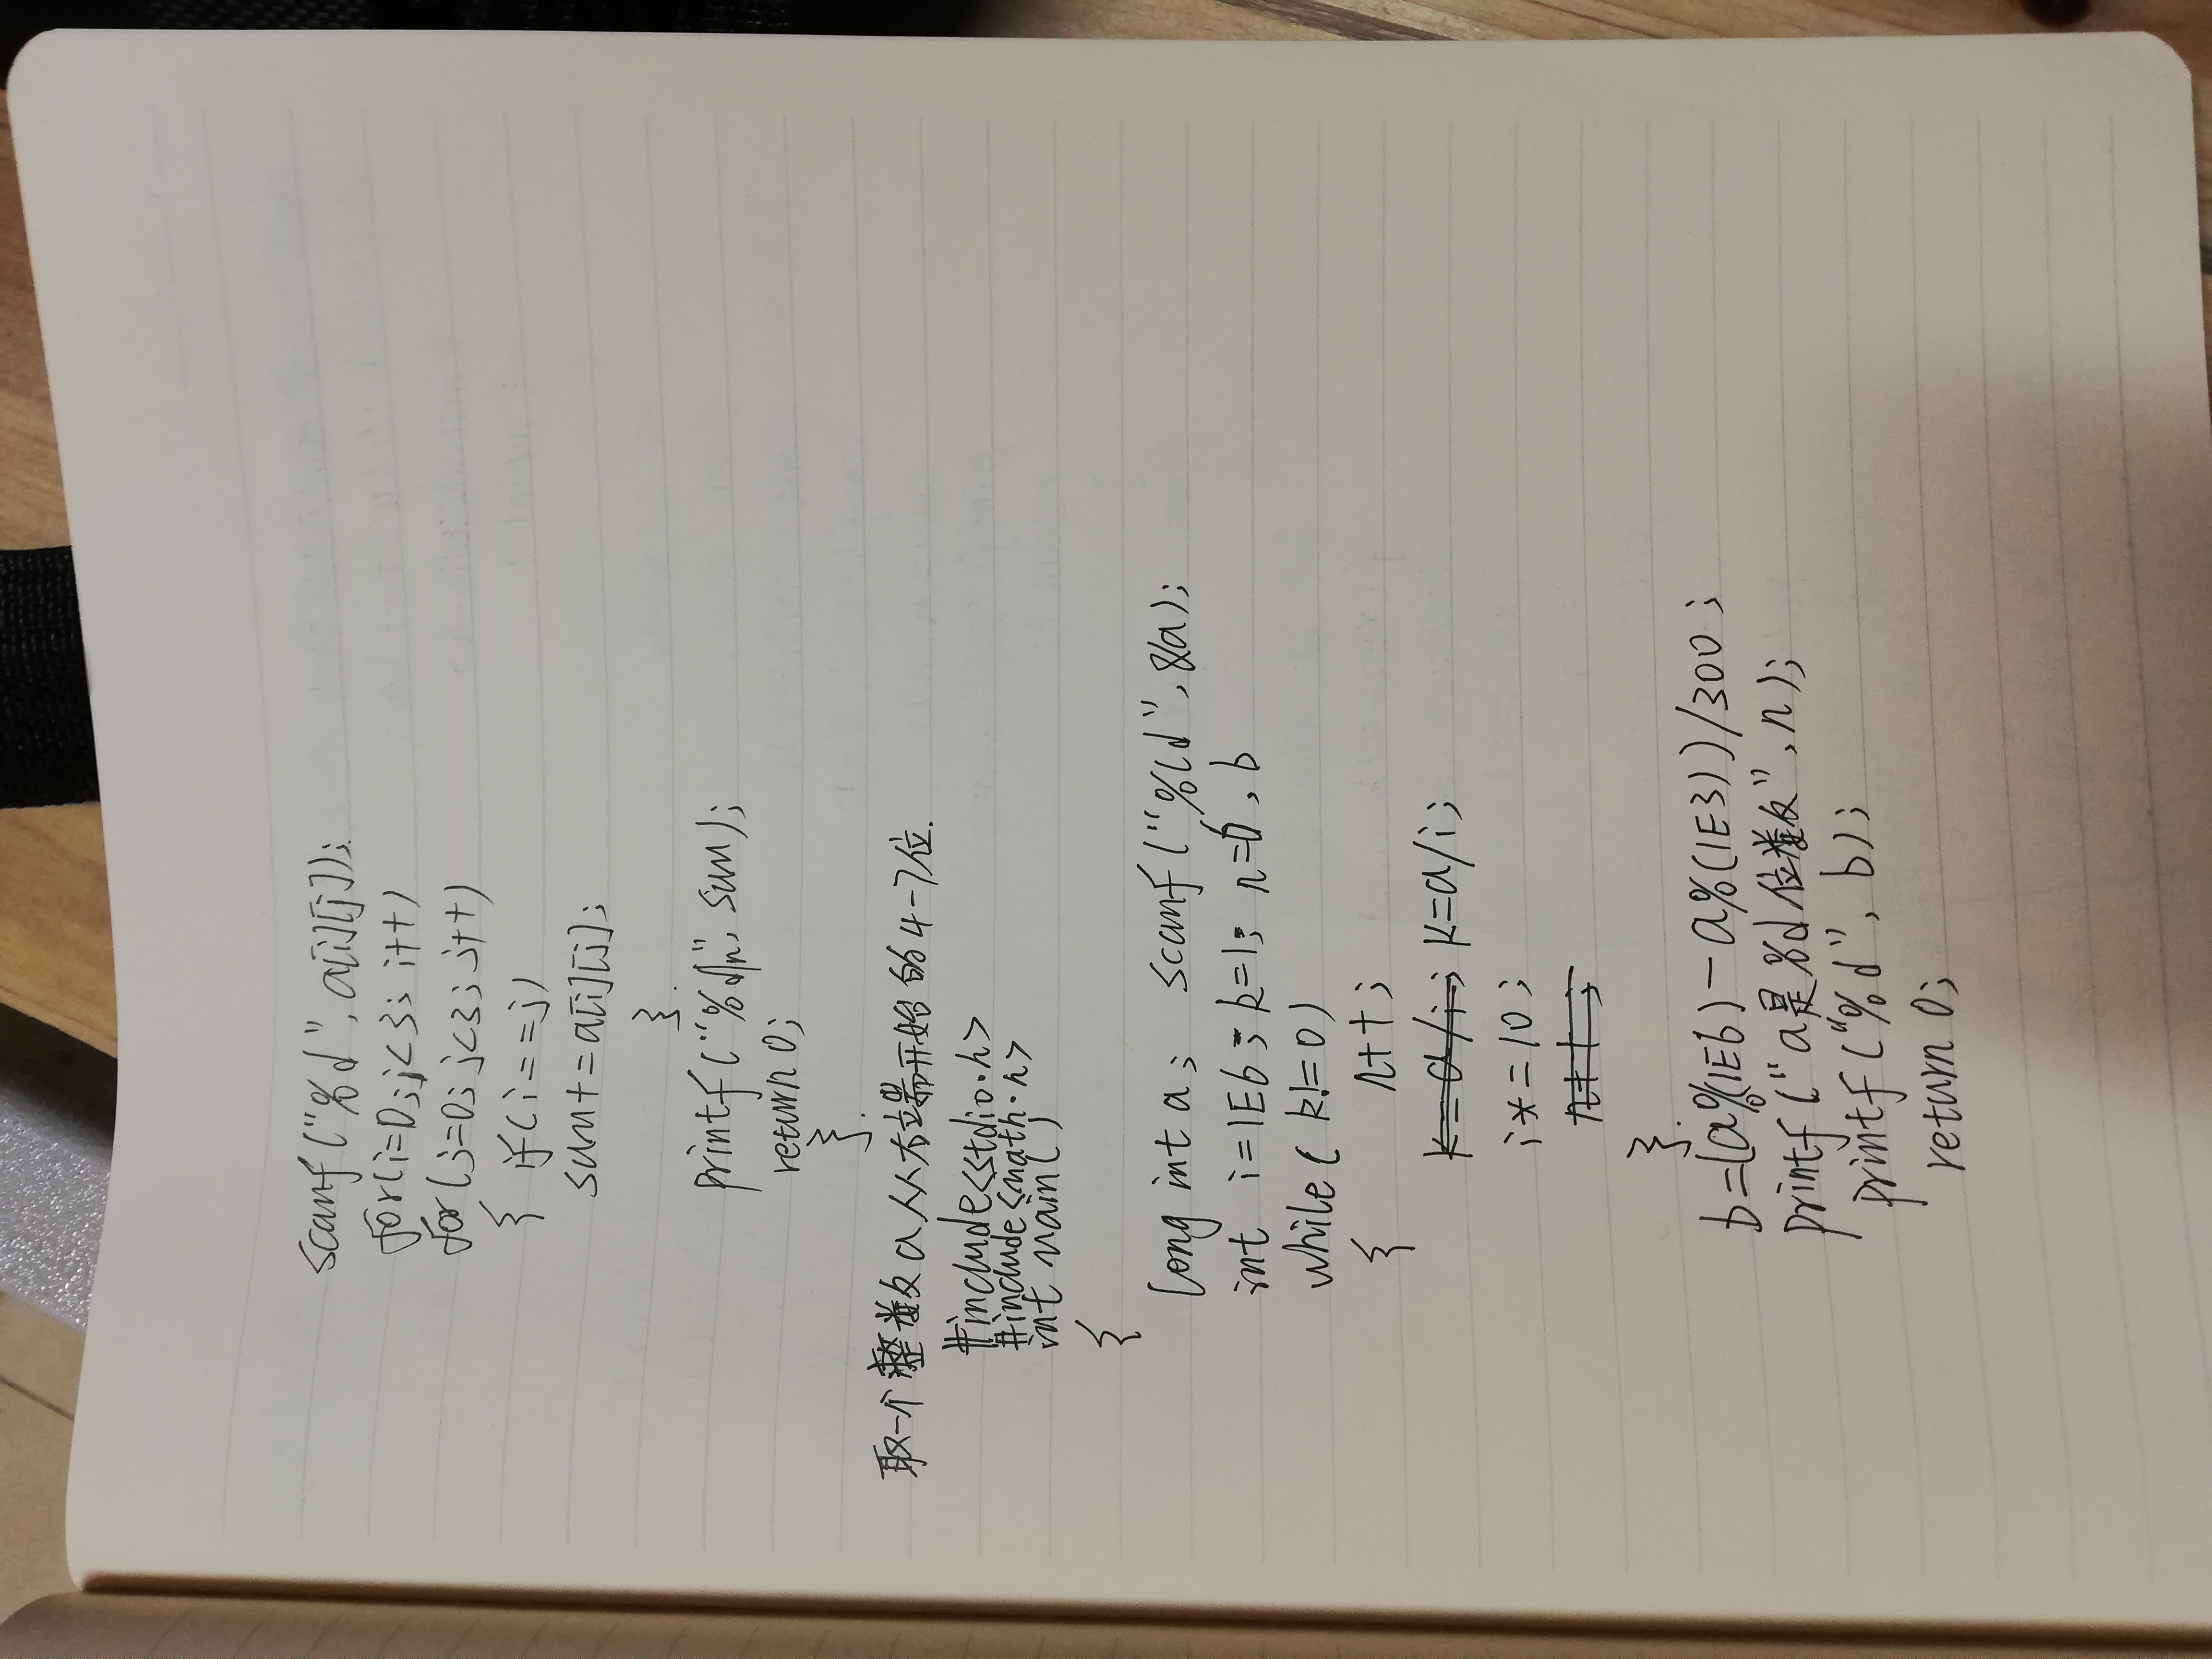 scanf("%d", a[i][j]);
for(i=0; i<3; i++)
for(j=0; j<3; j++)
{ if(i==j)
sum+=a[i][j];
}
printf("%d\n", sum);
return 0;
}
取一个整数a从右端开始的4-7位.
#include<stdio.h>
#include<math.h>
int main()
{
long int a; scanf("%ld",&a);
int i=1E6; k=1; n=6, b
while(k!=0)
{ n++;
k=a/i;
i*=10;
}
b=(a%1E6)-a%(1E3))/300;
printf("a是%d位数",n);
printf("%d", b);
return 0;